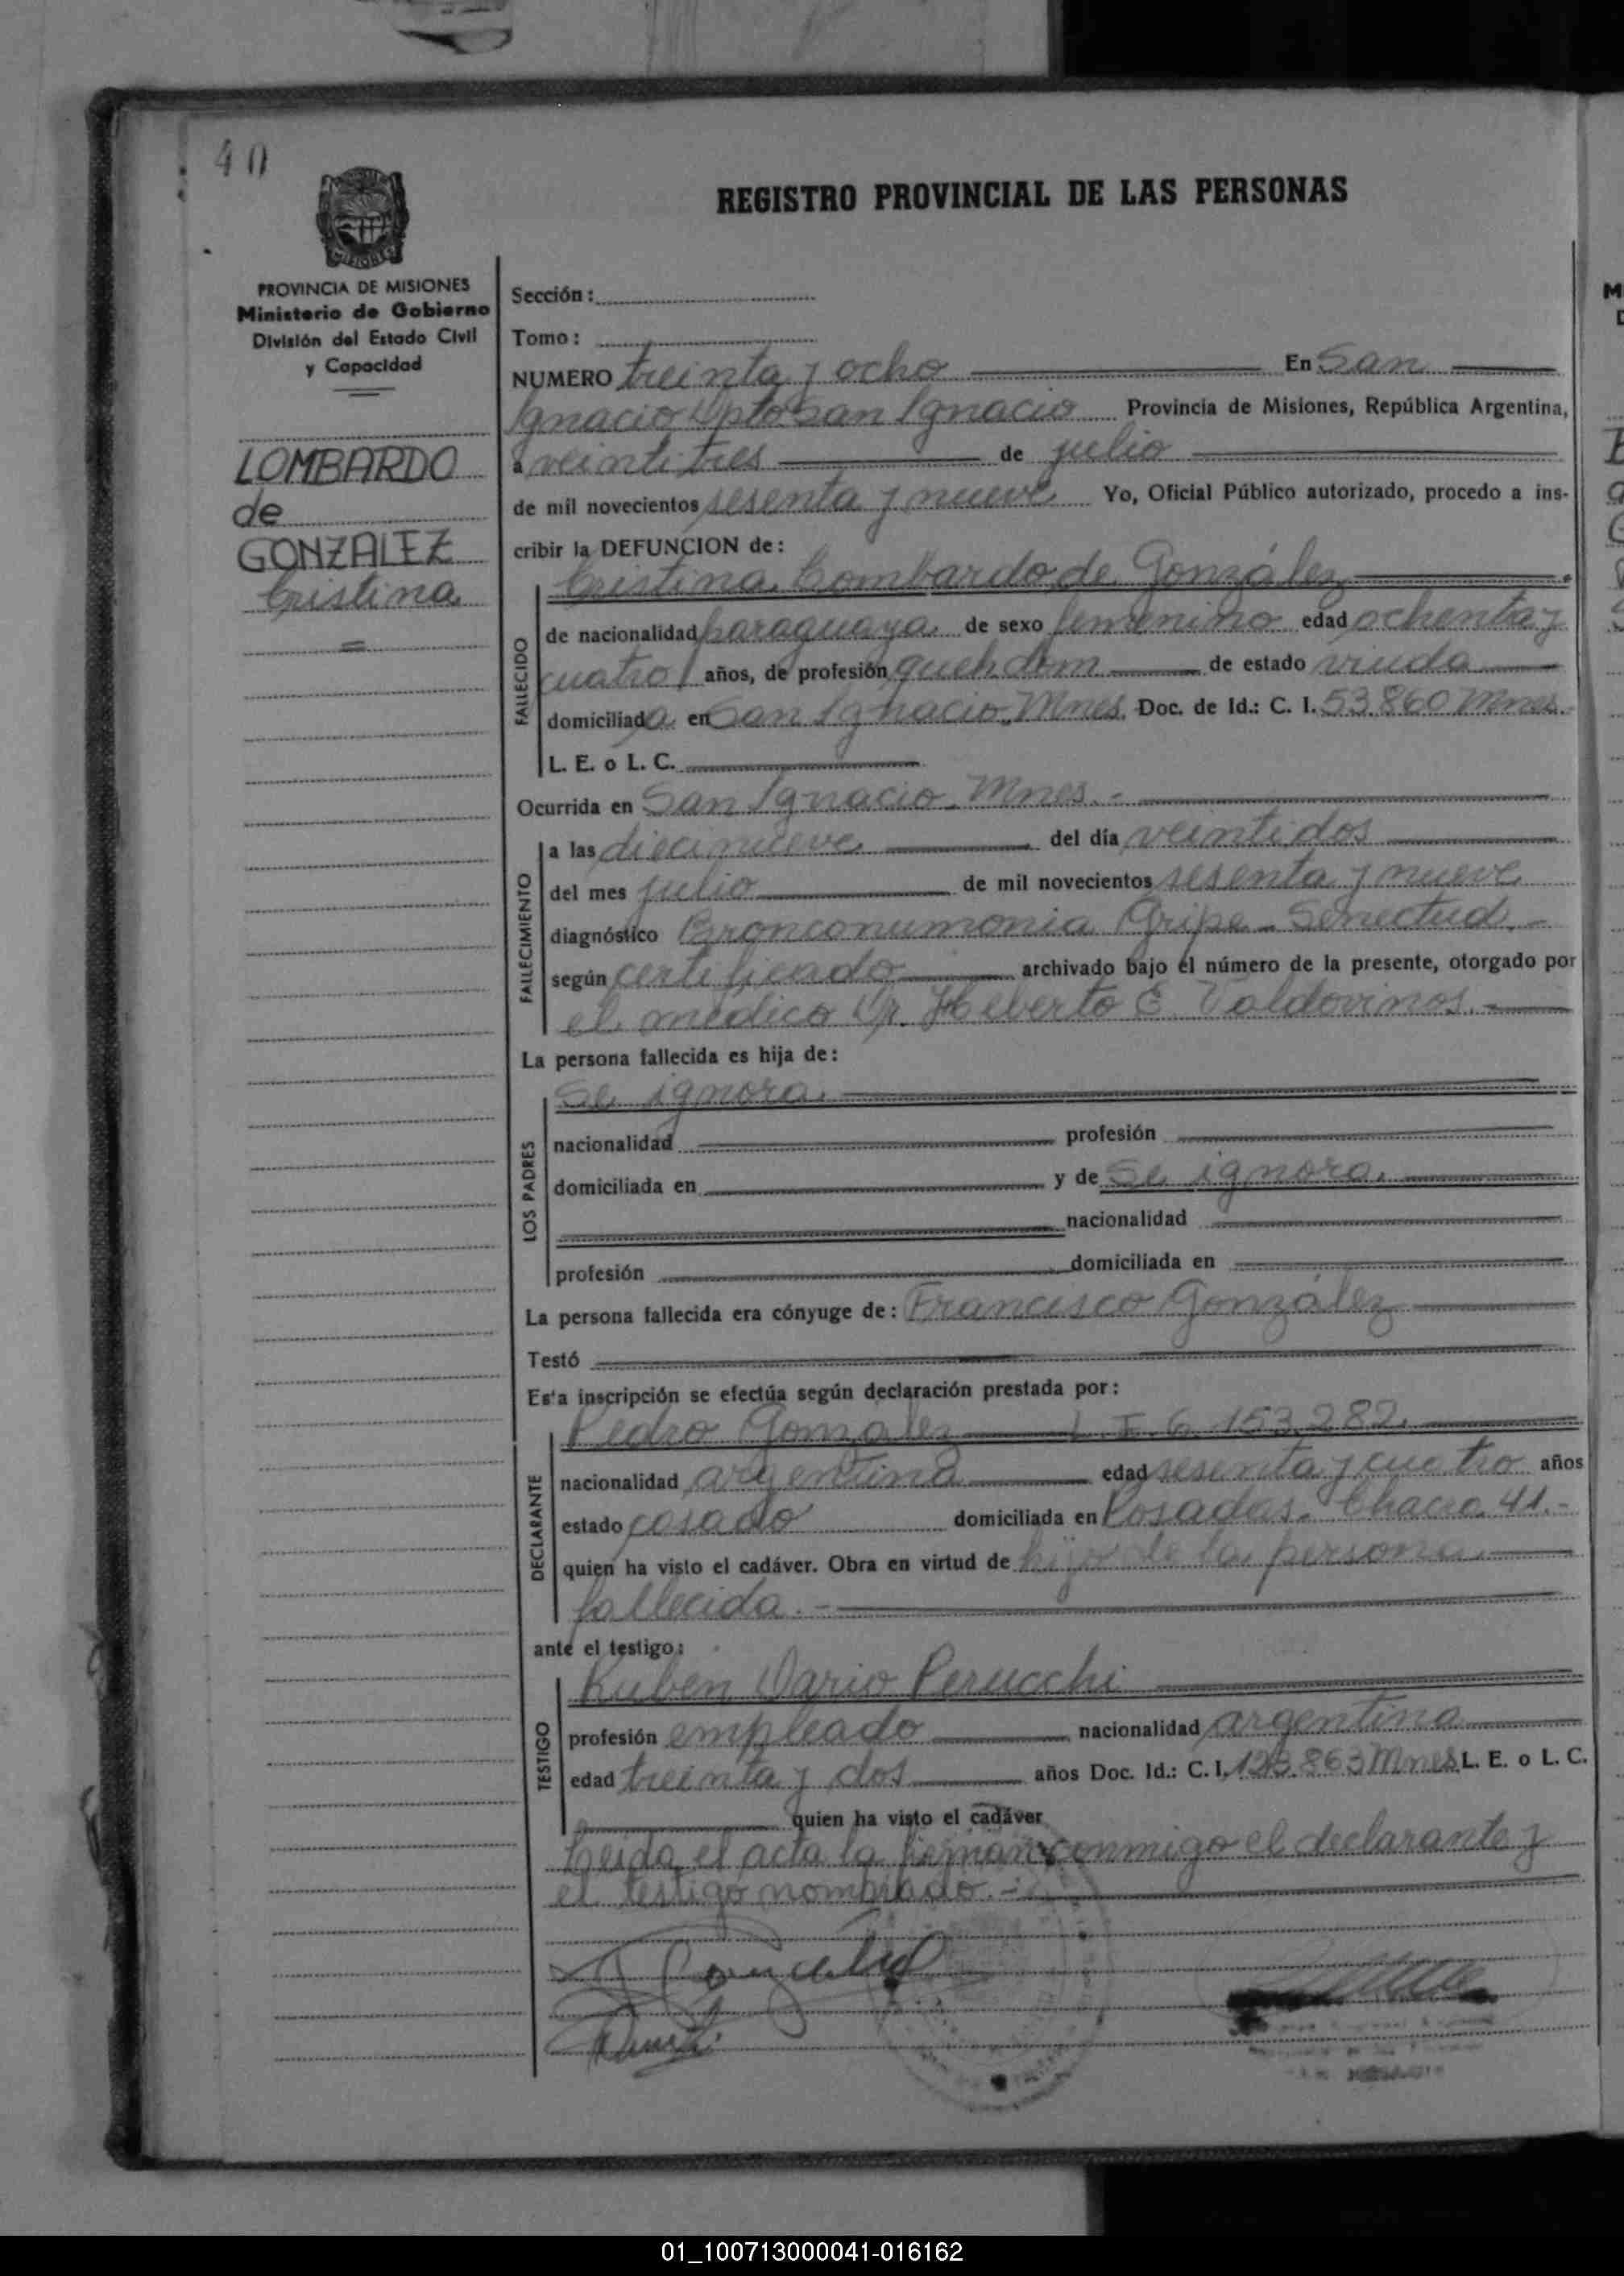 40
REGISTRO PROVINCIAL DE LAS PERSONAS
PROVINCIA DE MISIONES
Ministerio de Gobierno
División del Estado Civil
y Capacidad
LOMBARDO
de
GONZALEZ
Cristina
Sección:
Tomo:
NUMERO treinta y ocho En San
Ignacio Dpto San Ignacio Provincia de Misiones, República Argentina,
a veintitres de julio
de mil novecientos sesenta y nueve Yo, Oficial Público autorizado, procedo a ins-
cribir la DEFUNCION de:
Cristina Lombardo de González
FALLECIDO
de nacionalidad paraguaya de sexo femenino edad ochenta y
cuatro años, de profesión queh dom de estado viuda
domiciliada en San Ignacio, Mnes. Doc. de Id.: C. I. 53.860 Mnes.
L. E. o L. C.
Ocurrida en San Ignacio, Mnes.-
FALLECIMIENTO
a las diecinueve del día veintidos
del mes julio de mil novecientos sesenta y nueve
diagnóstico Bronconumonia Gripe - Senectud.-
según certificado archivado bajo el número de la presente, otorgado por
el médico Dr. Heberto E. Valdovinos.-
La persona fallecida es hija de:
LOS PADRES
Se ignora.
nacionalidad profesión
domiciliada en y de Se ignora.
nacionalidad
profesión domiciliada en
La persona fallecida era cónyuge de: Francisco González
Testó
Esta inscripción se efectúa según declaración prestada por:
DECLARANTE
Pedro Gonzalez L.E. 6.153.282.
nacionalidad argentina edad sesenta y cuatro años
estado casado domiciliada en Posadas. Chacra 41.-
quien ha visto el cadáver. Obra en virtud de hijo de la persona
fallecida.-
ante el testigo:
TESTIGO
Ruben Dario Perucchi
profesión empleado nacionalidad argentina
edad treinta y dos años Doc. Id.: C. I. 123.863 Mnes L. E. o L. C.
quien ha visto el cadáver
Leida el acta la firman conmigo el declarante y
el testigo nombrado.-
01_100713000041-016162